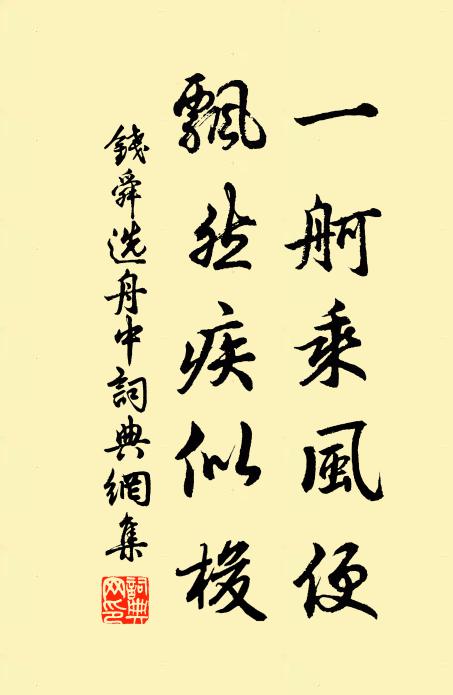 一舸乘風便
飄然疾似梭
錢舜选舟中詞典網集
詞典网印